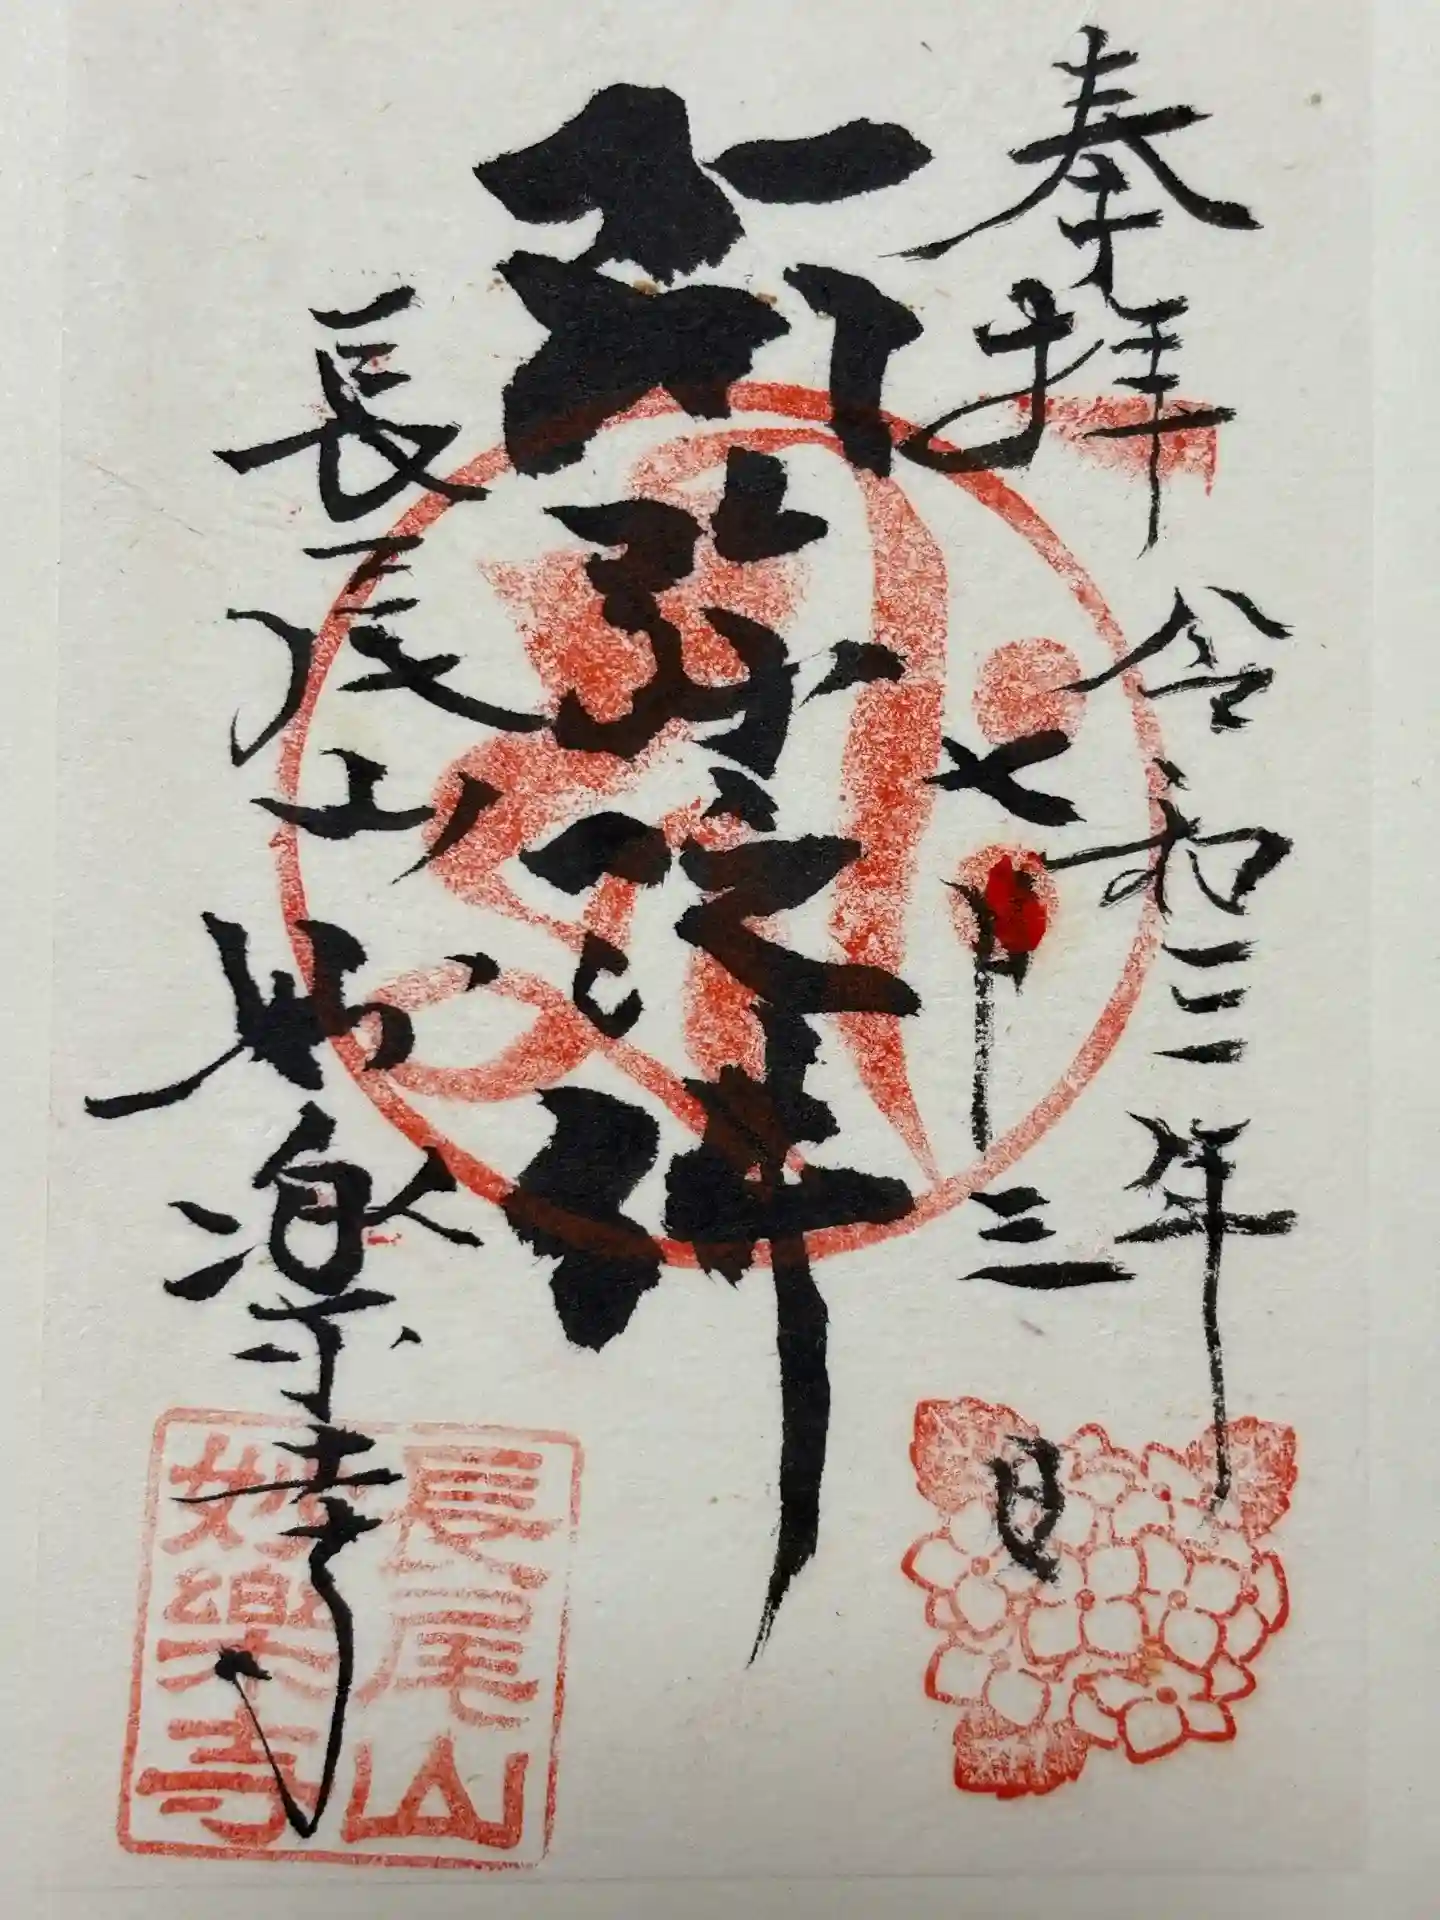 奉拝
令和三年
七月三日
阿弥陀佛
長尾山
妙楽寺
長尾山
妙樂寺